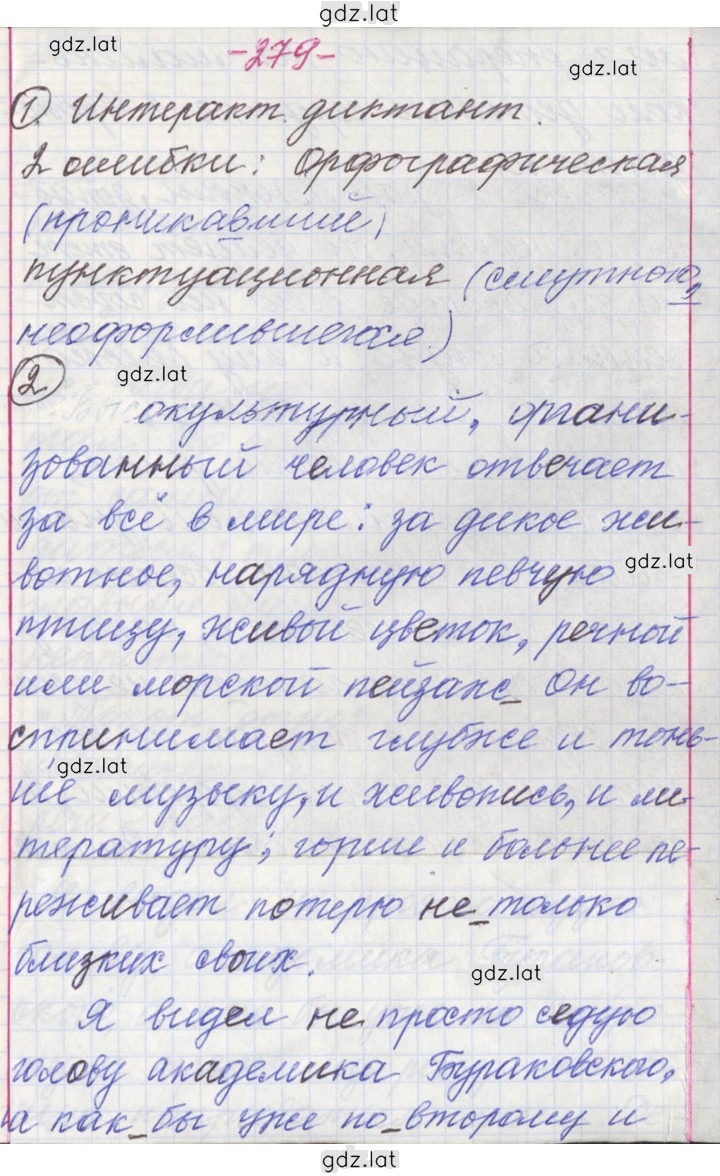 gdz.lat
gdz.lat
-279-
gdz.lat
① Интеракт. диктант.
2 ошибки: Орфографическая
(проникавший)
пунктуационная (смутною,
неоформившегося.)
gdz.lat
②
Высокультурный, органи-
зованный человек отвечает
за всё в мире: за дикое жи-
gdz.lat
вотное, нарядную певчую
птицу, живой цветок, речной
или морской пейзаж_ Он во-
спринимает глубже и тонь-
gdz.lat
ше музыку, и живопись, и ли-
тературу; горше и больнее пе-
реживает потерю не_только
близких своих.
gdz.lat
Я видел не_просто седую
голову академика Бураковского,
а как_бы уже по_второму и
gdz.lat